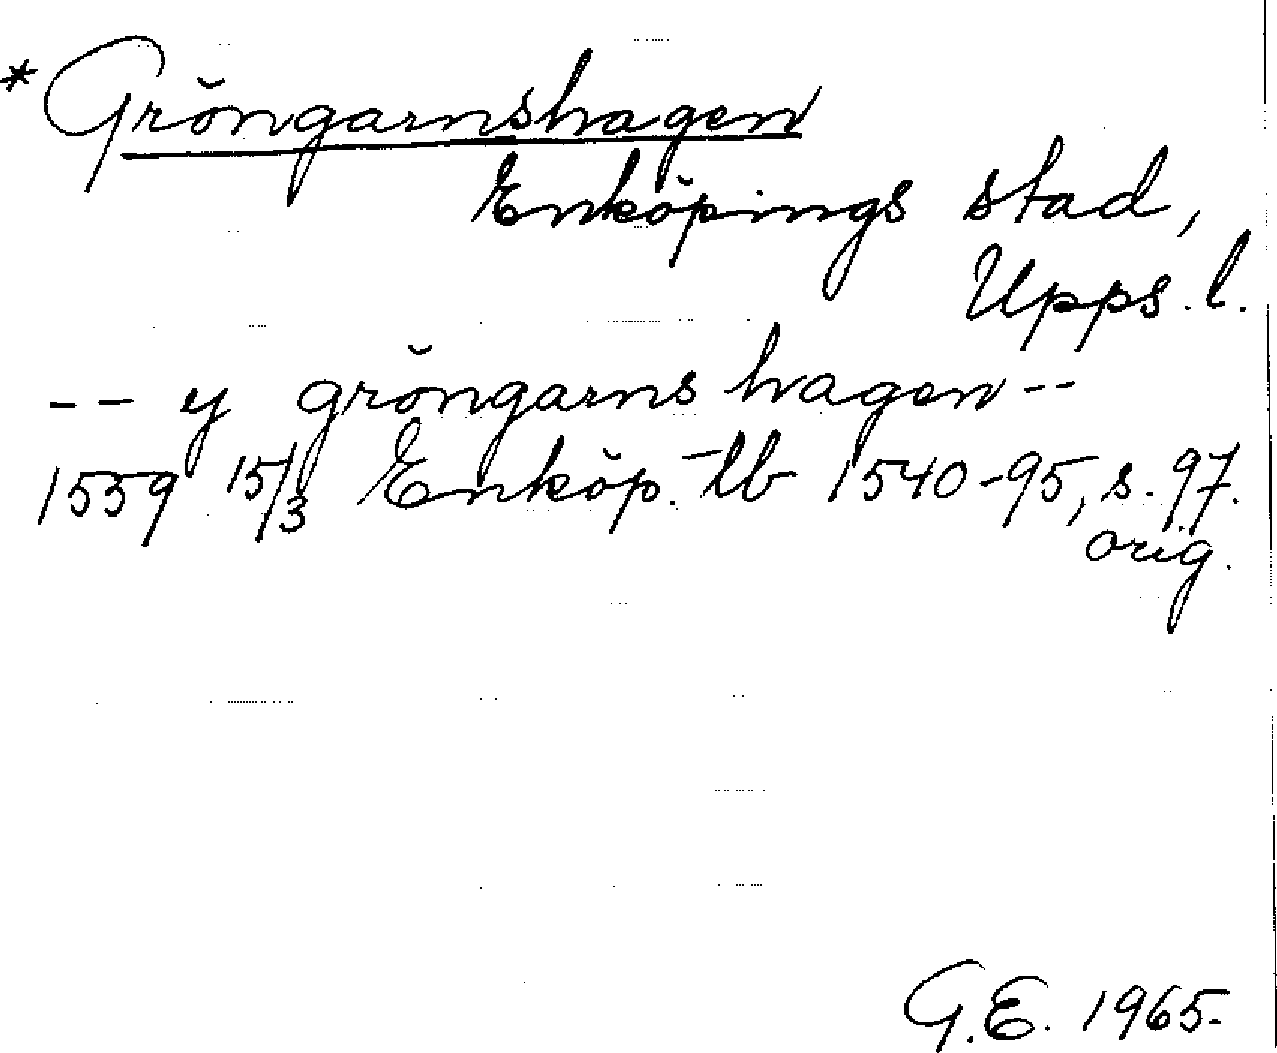 *Gröngarnshagen
Enköpings stad,
Upps. l.
-- y gröngarns hagen --
1559 15/3 Enköp. tb 1540-95, s. 97.
orig.
G.E. 1965.